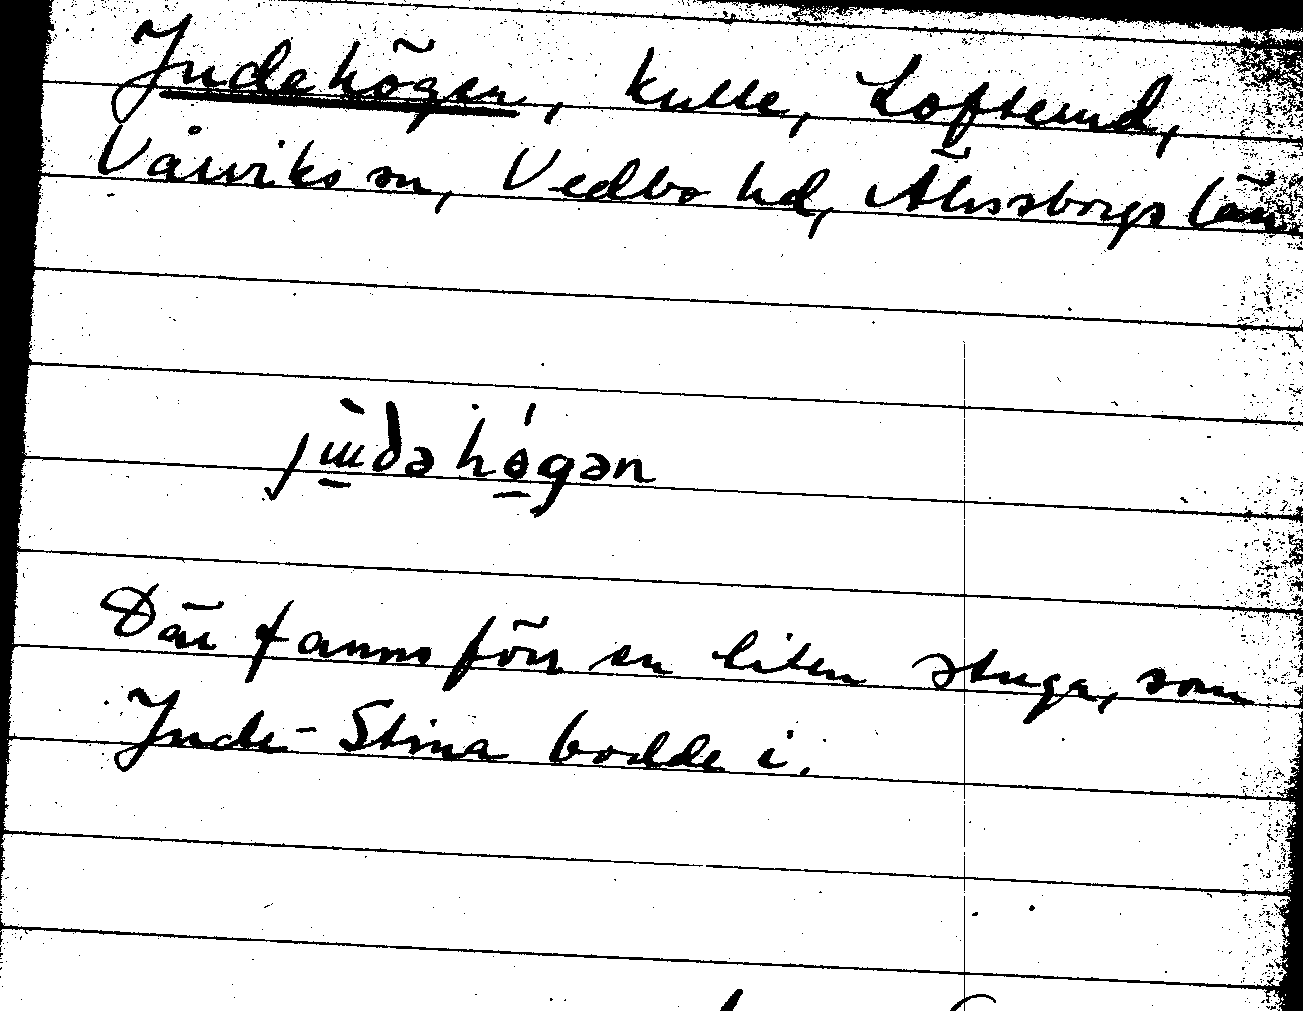 Judehögen, kulle, Loftend,
Vårviks sn, Vedbo hd, Älvsborgs län.
jɯ̀dəhǿgən
Där fanns förr en liten stuga, som
Jude-Stina bodde i.